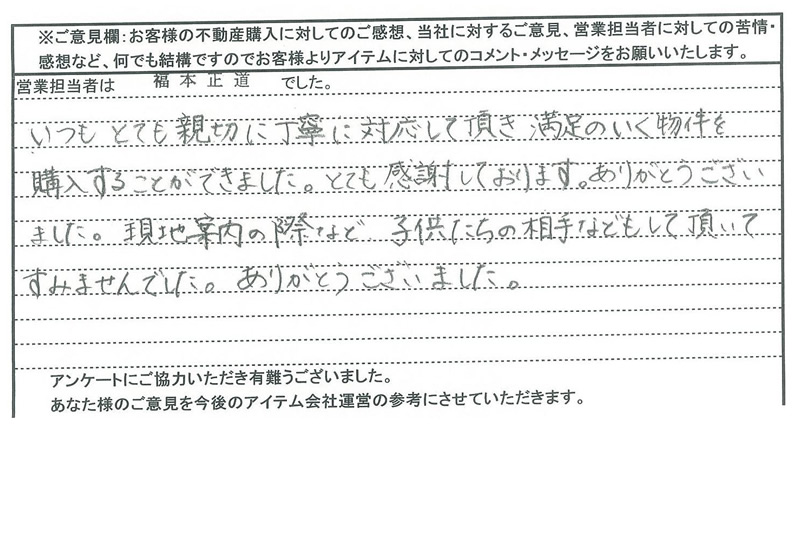 ※ご意見欄:お客様の不動産購入に対してのご感想、当社に対するご意見、営業担当者に対しての苦情・
感想など、何でも結構ですのでお客様よりアイテムに対してのコメント・メッセージをお願いいたします。
営業担当者は 福本正道 でした。
いつも とても親切に丁寧に対応して頂き 満足のいく物件を
購入することができました。とても感謝しております。ありがとうござい
ました。現地案内の際など、子供たちの相手などもして頂いて
すみませんでした。ありがとうございました。
アンケートにご協力いただき有難うございました。
あなた様のご意見を今後のアイテム会社運営の参考にさせていただきます。